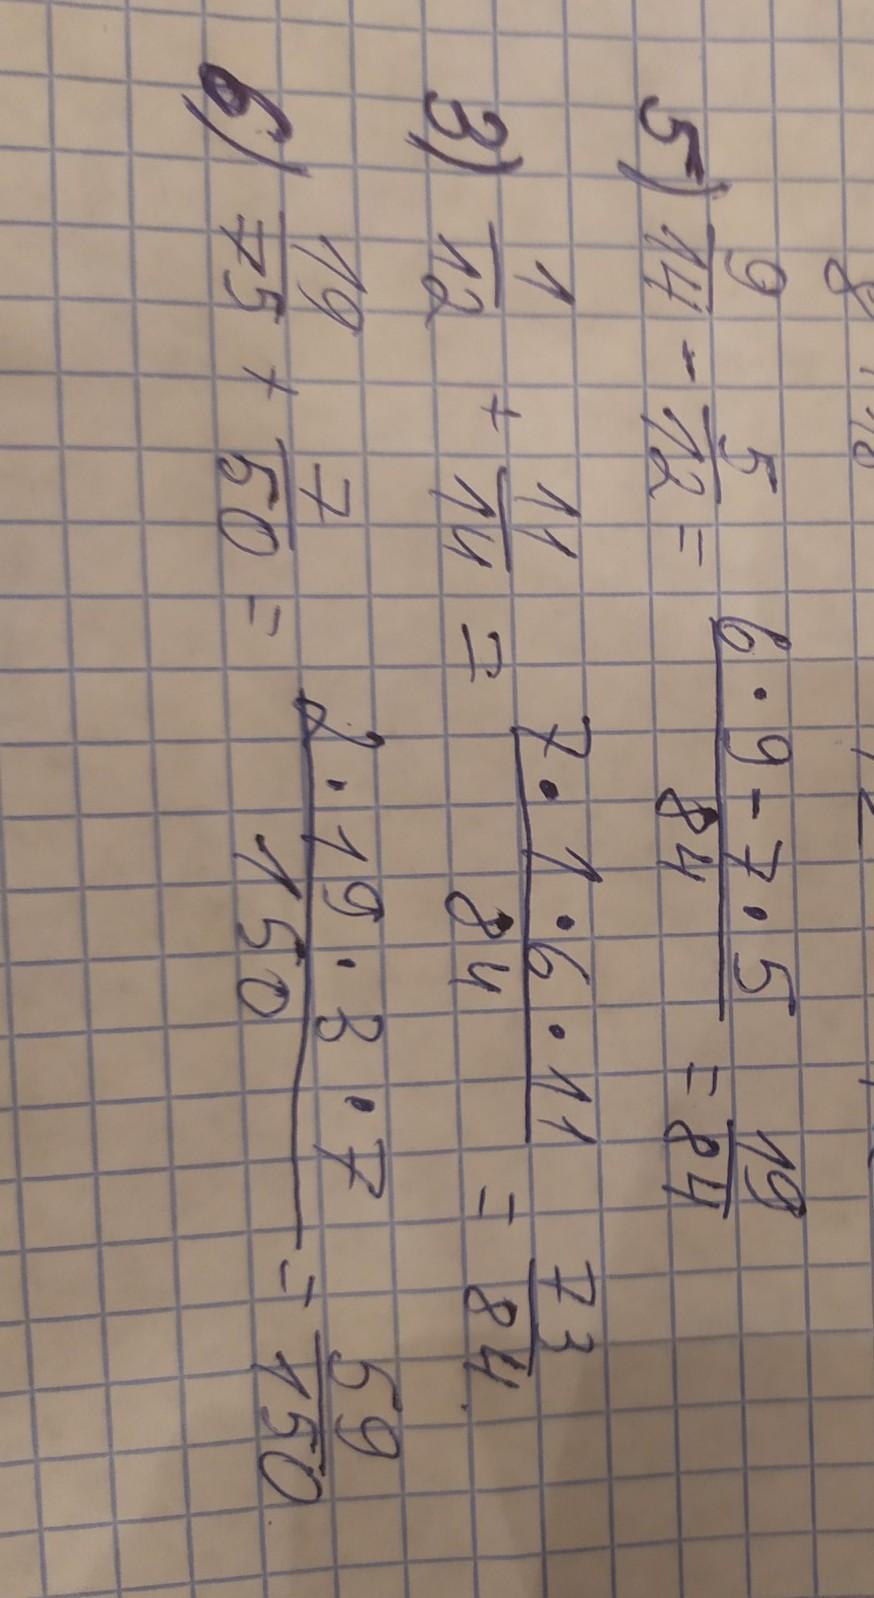 5) 9/14 - 5/12 = (6 · 9 - 7 · 5)/84 = 19/84
3) 1/12 + 11/14 = (7 · 1 · 6 · 11)/84 = 73/84
6) 19/75 + 7/50 = (2 · 19 · 3 · 7)/150 = 59/150